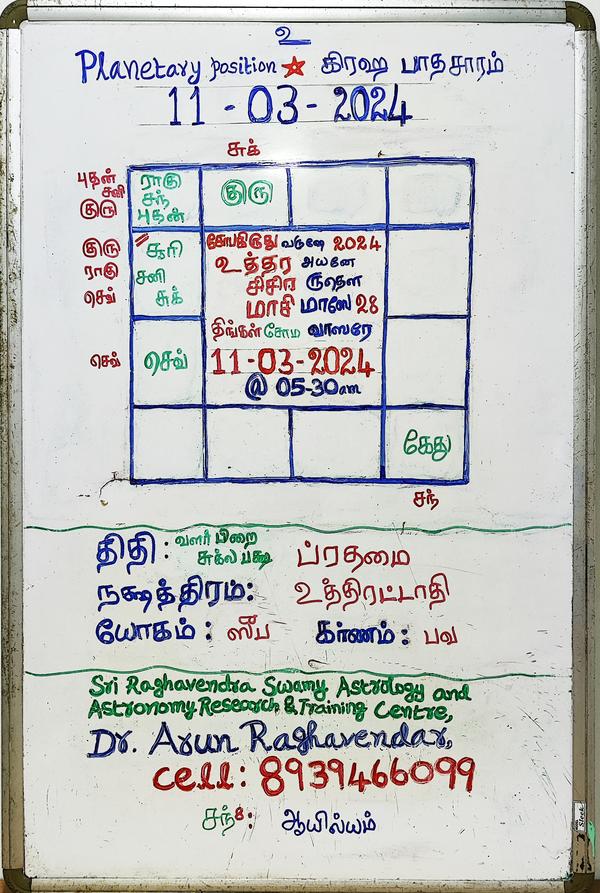 உ
Planetary position ★ கிரஹ பாதசாரம்
11-03-2024
சுக்
புதன்
சனி
குரு
ராகு
சந்
புதன்
குரு
குரு
ராகு
செவ்
சூரி
சனி
சுக்
சோபகிருது வருஷே 2024
உத்தர அயனே
சிசிர ருதௌ
மாசி மாஸே 28
திங்கள் சோம வாஸரே
11-03-2024
@ 05-30am
செவ்
செவ்
கேது
சந்
திதி : வளர் பிறை
சுக்ல பக்ஷ ப்ரதமை
நக்ஷத்திரம்: உத்திரட்டாதி
யோகம் : ஸுப கர்ணம் : பவ
Sri Raghavendra Swamy Astrology and
Astronomy Research & Training Centre,
Dr. Arun Raghavendar,
cell: 8939466099
சந்8: ஆயில்யம்